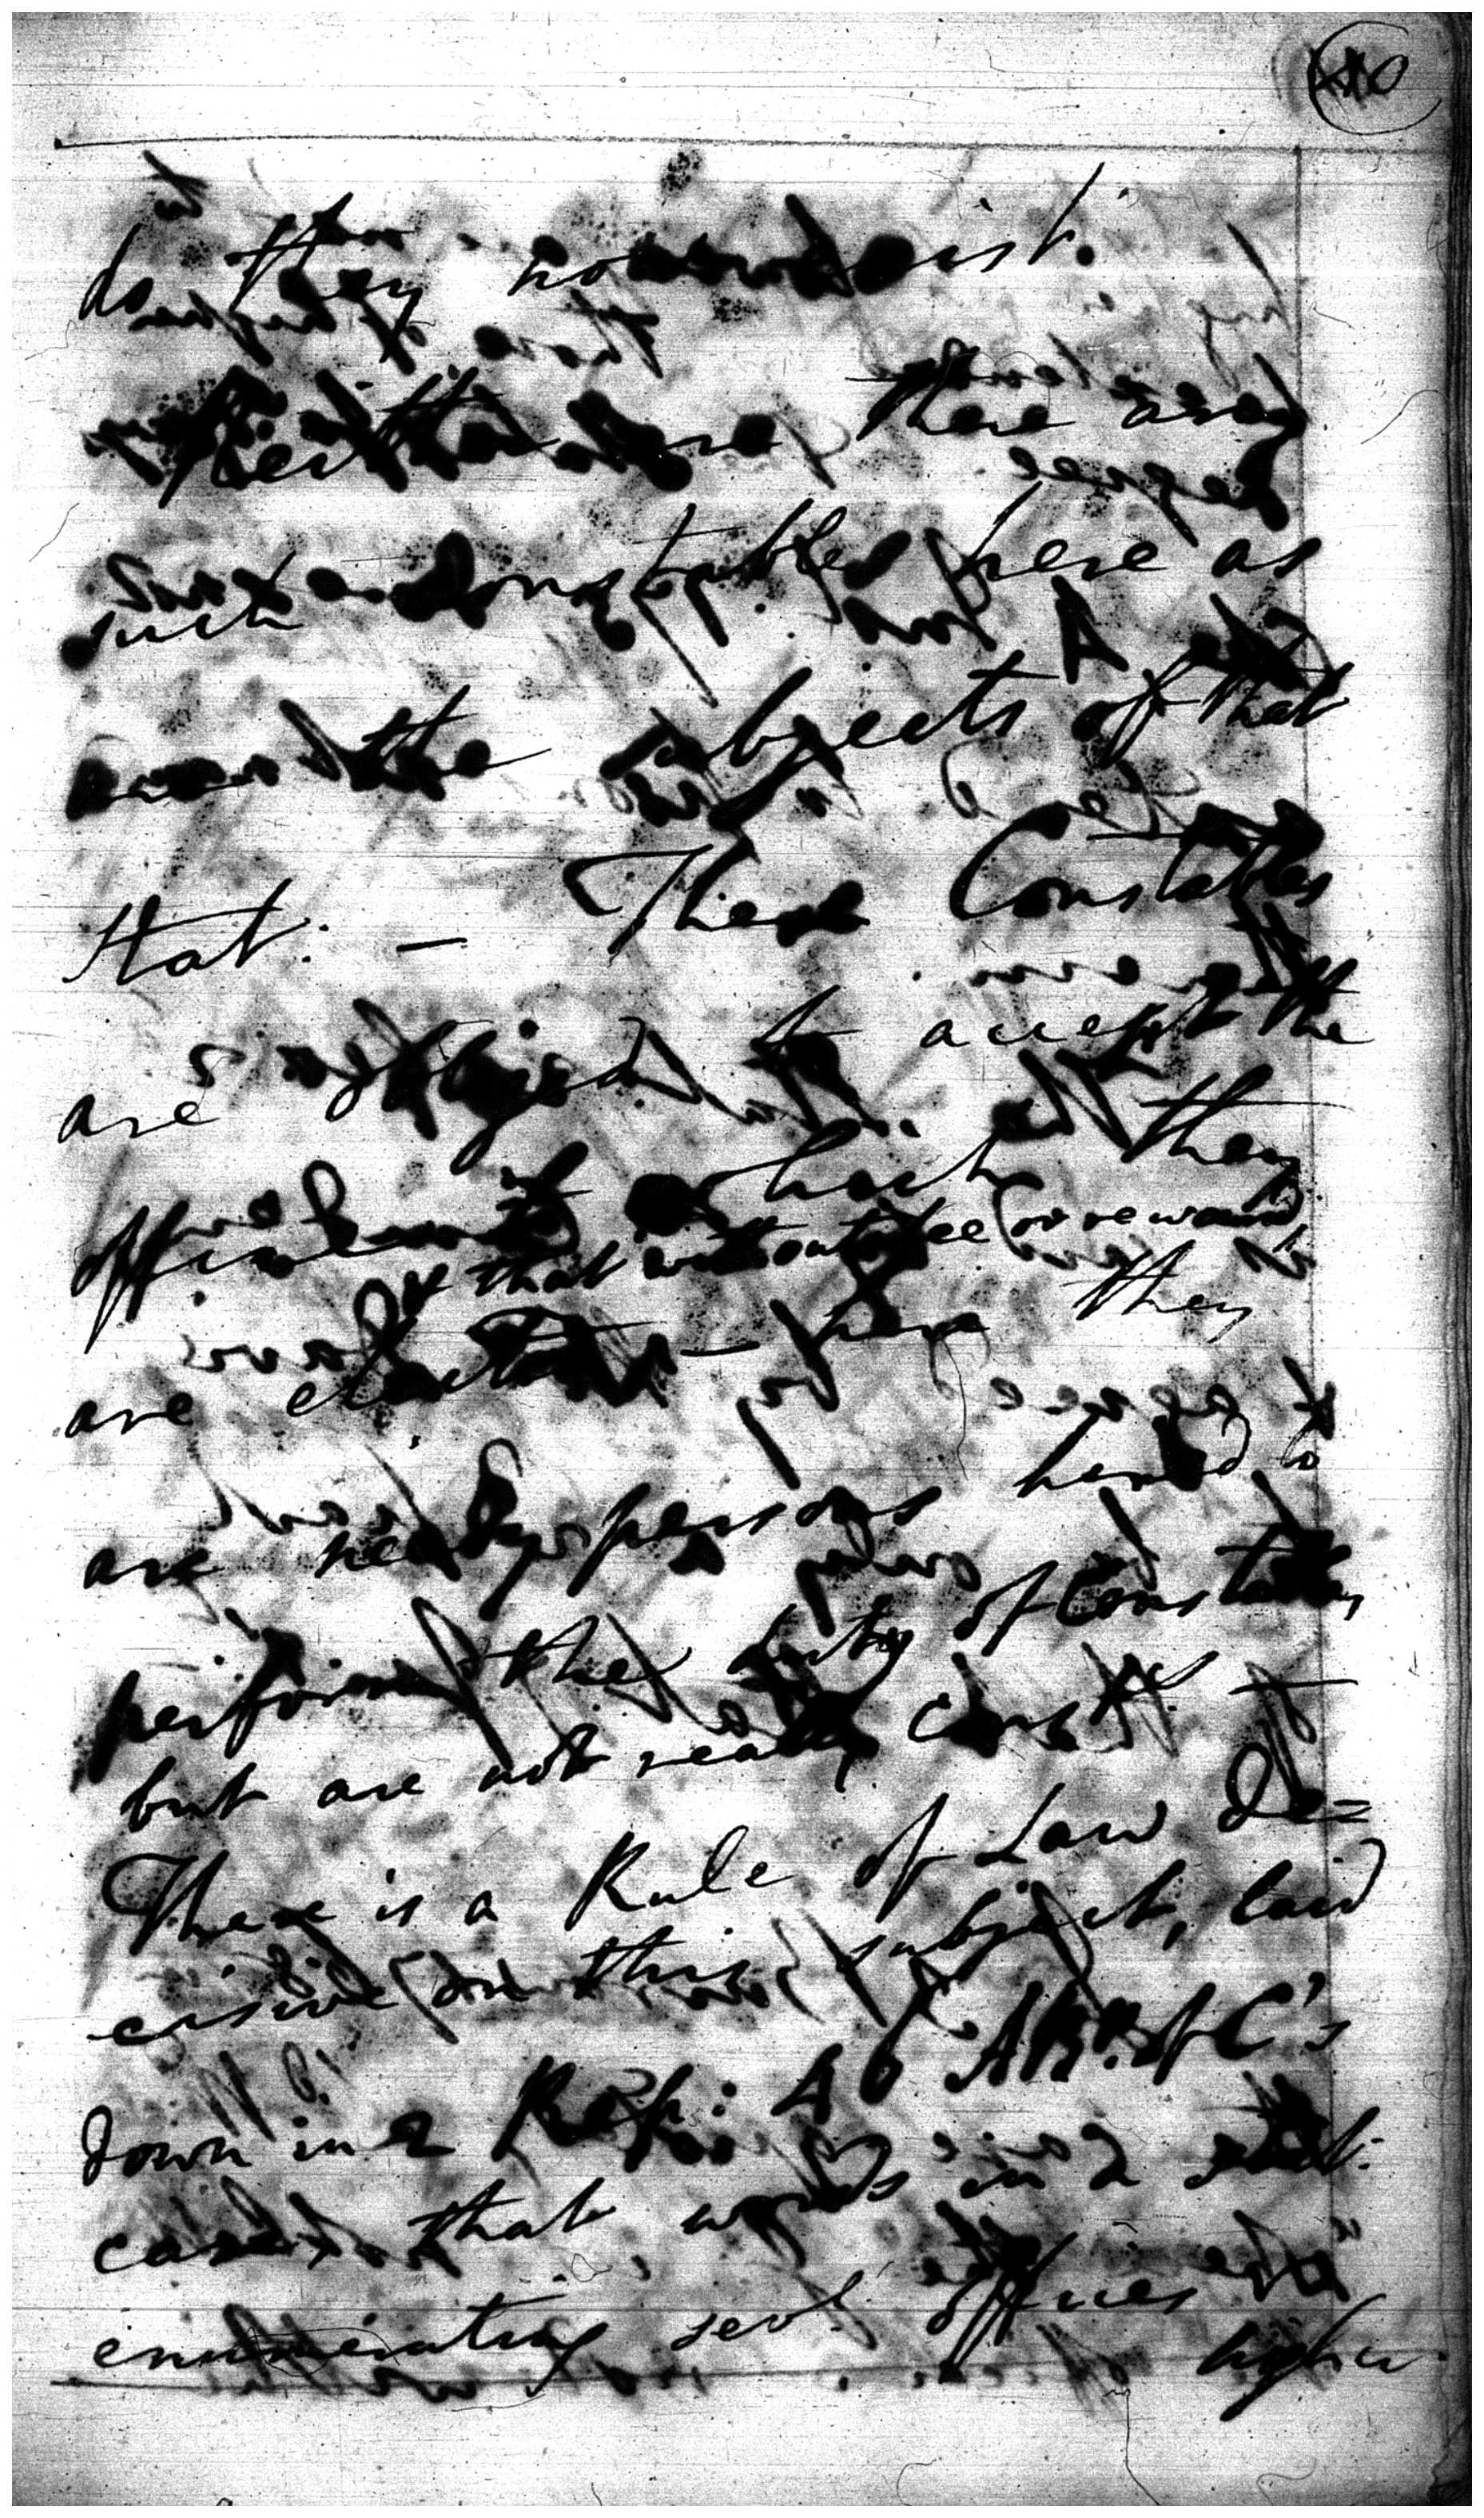 do they now exist.
Neither are there any
such Constables here as
were the subjects of that
Stat: — There Constables
are obliged to accept the
office to which they
& that without fee or reward,
are elected — here they
are nearly persons hired to
perform the duty of Constables
but are not really Const
There is a Rule of Law De=
cisive on this subject, laid
down in 2 Rep: 46 ABp. of C's
case that words in a Stat:
enumerating sevl. offices
higher